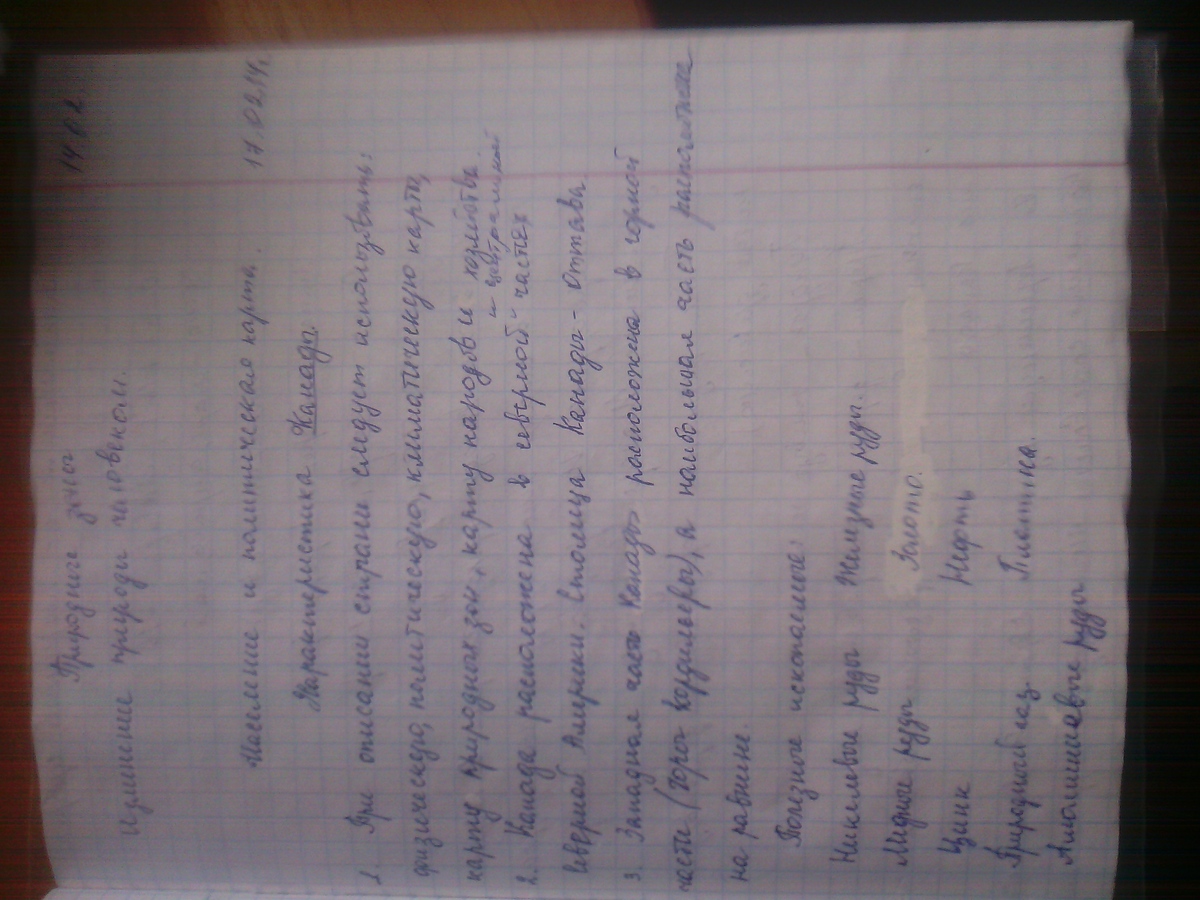 14.02
Природные зоны
Изменение природы человеком.
17.02.14г.
Население и политическая карта.
Характеристика Канады.
1. При описании страны следует использовать:
физическую, политическую, климатическую карту,
карту природных зон, карту народов и хозяйства.
2. Канада расположена в северной и центральной частях
Северной Америки. Столица Канады - Оттава.
3. Западная часть Канады расположена в горной
части (горы Кордильеры), а наибольшая часть расположена
на равнине.
Полезные ископаемые:
Никелевые руды Железные руды.
Медные руды Золото.
Цинк Нефть
Природный газ. Платина.
Алюминиевые руды